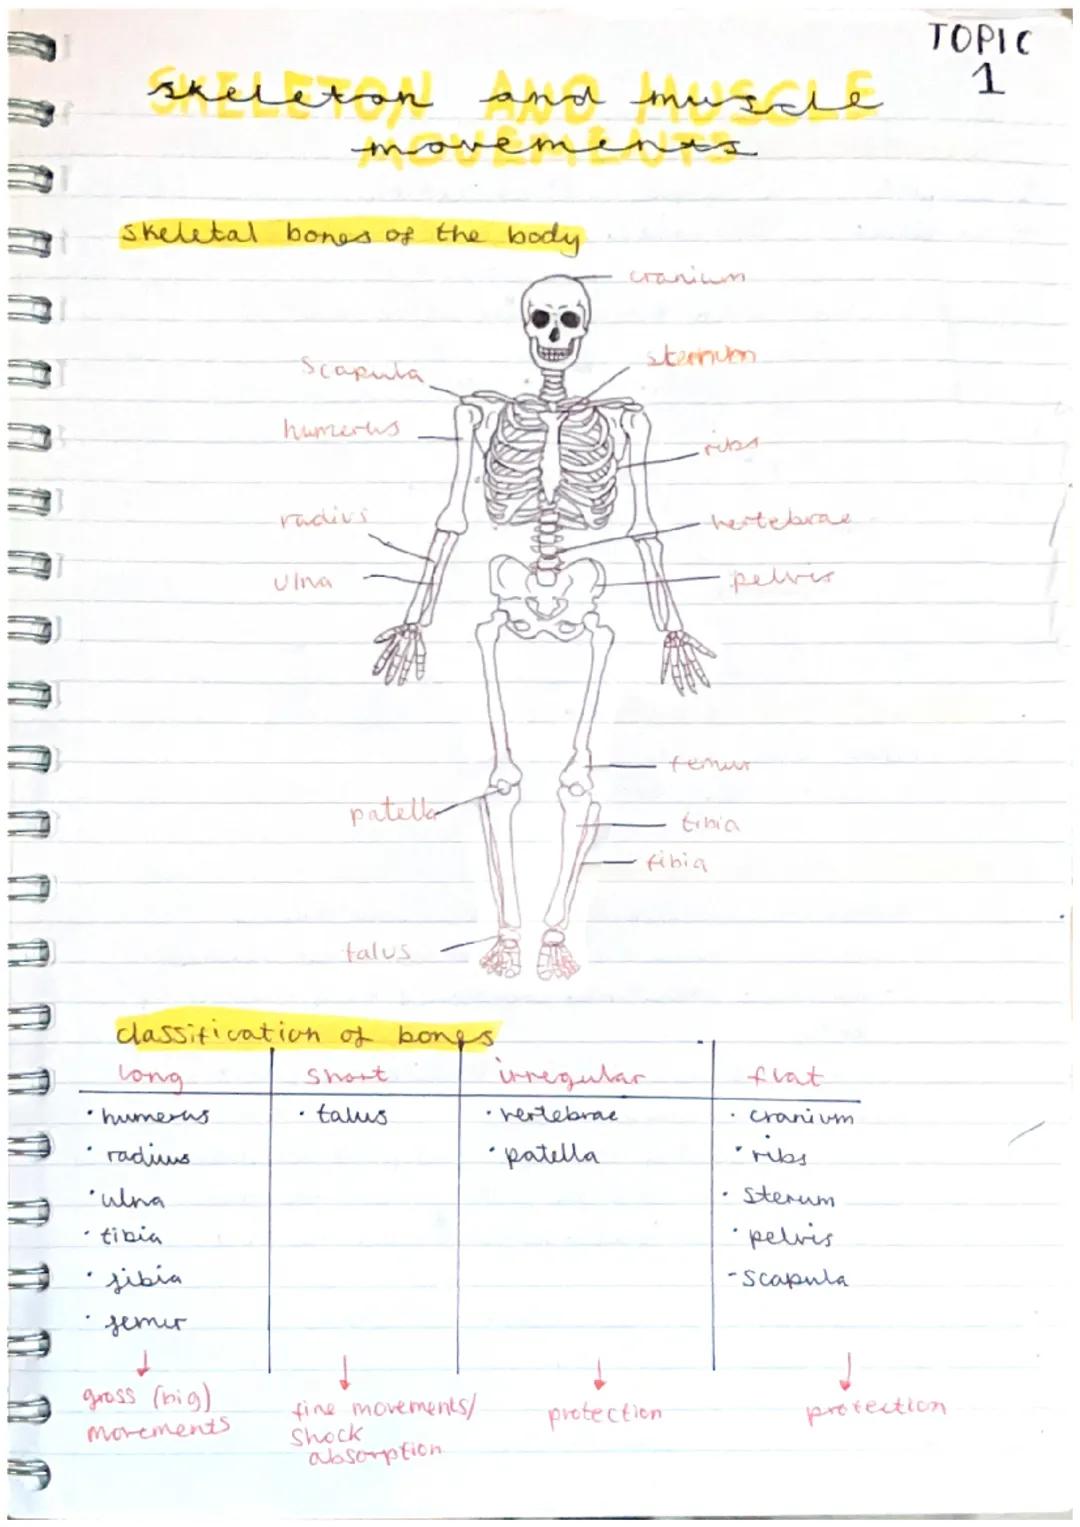 TOPIC
1
SKELETON AND MUSCLE
MOVEMENTS
skeleton and muscle
movements
skeletal bones of the body
cranium
sternum
Scapula
humerus
ribs
radius
vertebrae
ulna
pelvis
femur
patella
tibia
fibia
talus
classification of bones
long short irregular flat
• humerus • talus • vertebrae • cranium
• radius • patella • ribs
• ulna • sterum
• tibia • pelvis
• fibia - scapula
• femur
↓ ↓ ↓ ↓
gross (big) fine movements/ protection protection
movements shock
absorption